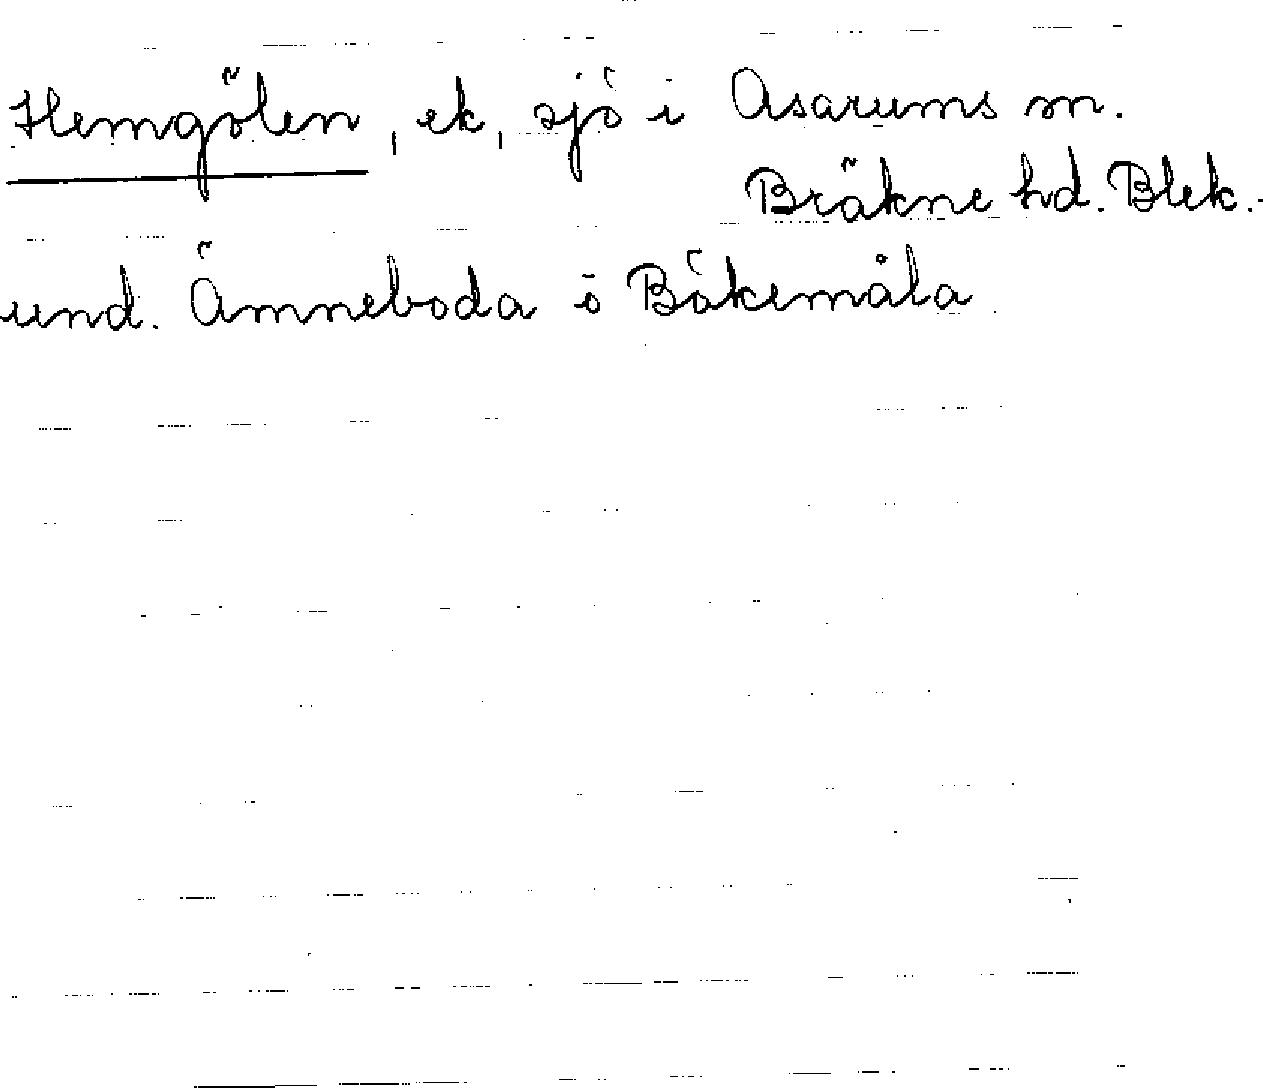 Hemgölen, ek, sjö i Asarums sn.
Bräkne hd. Blek.
und. Ämneboda ö Bökemåla